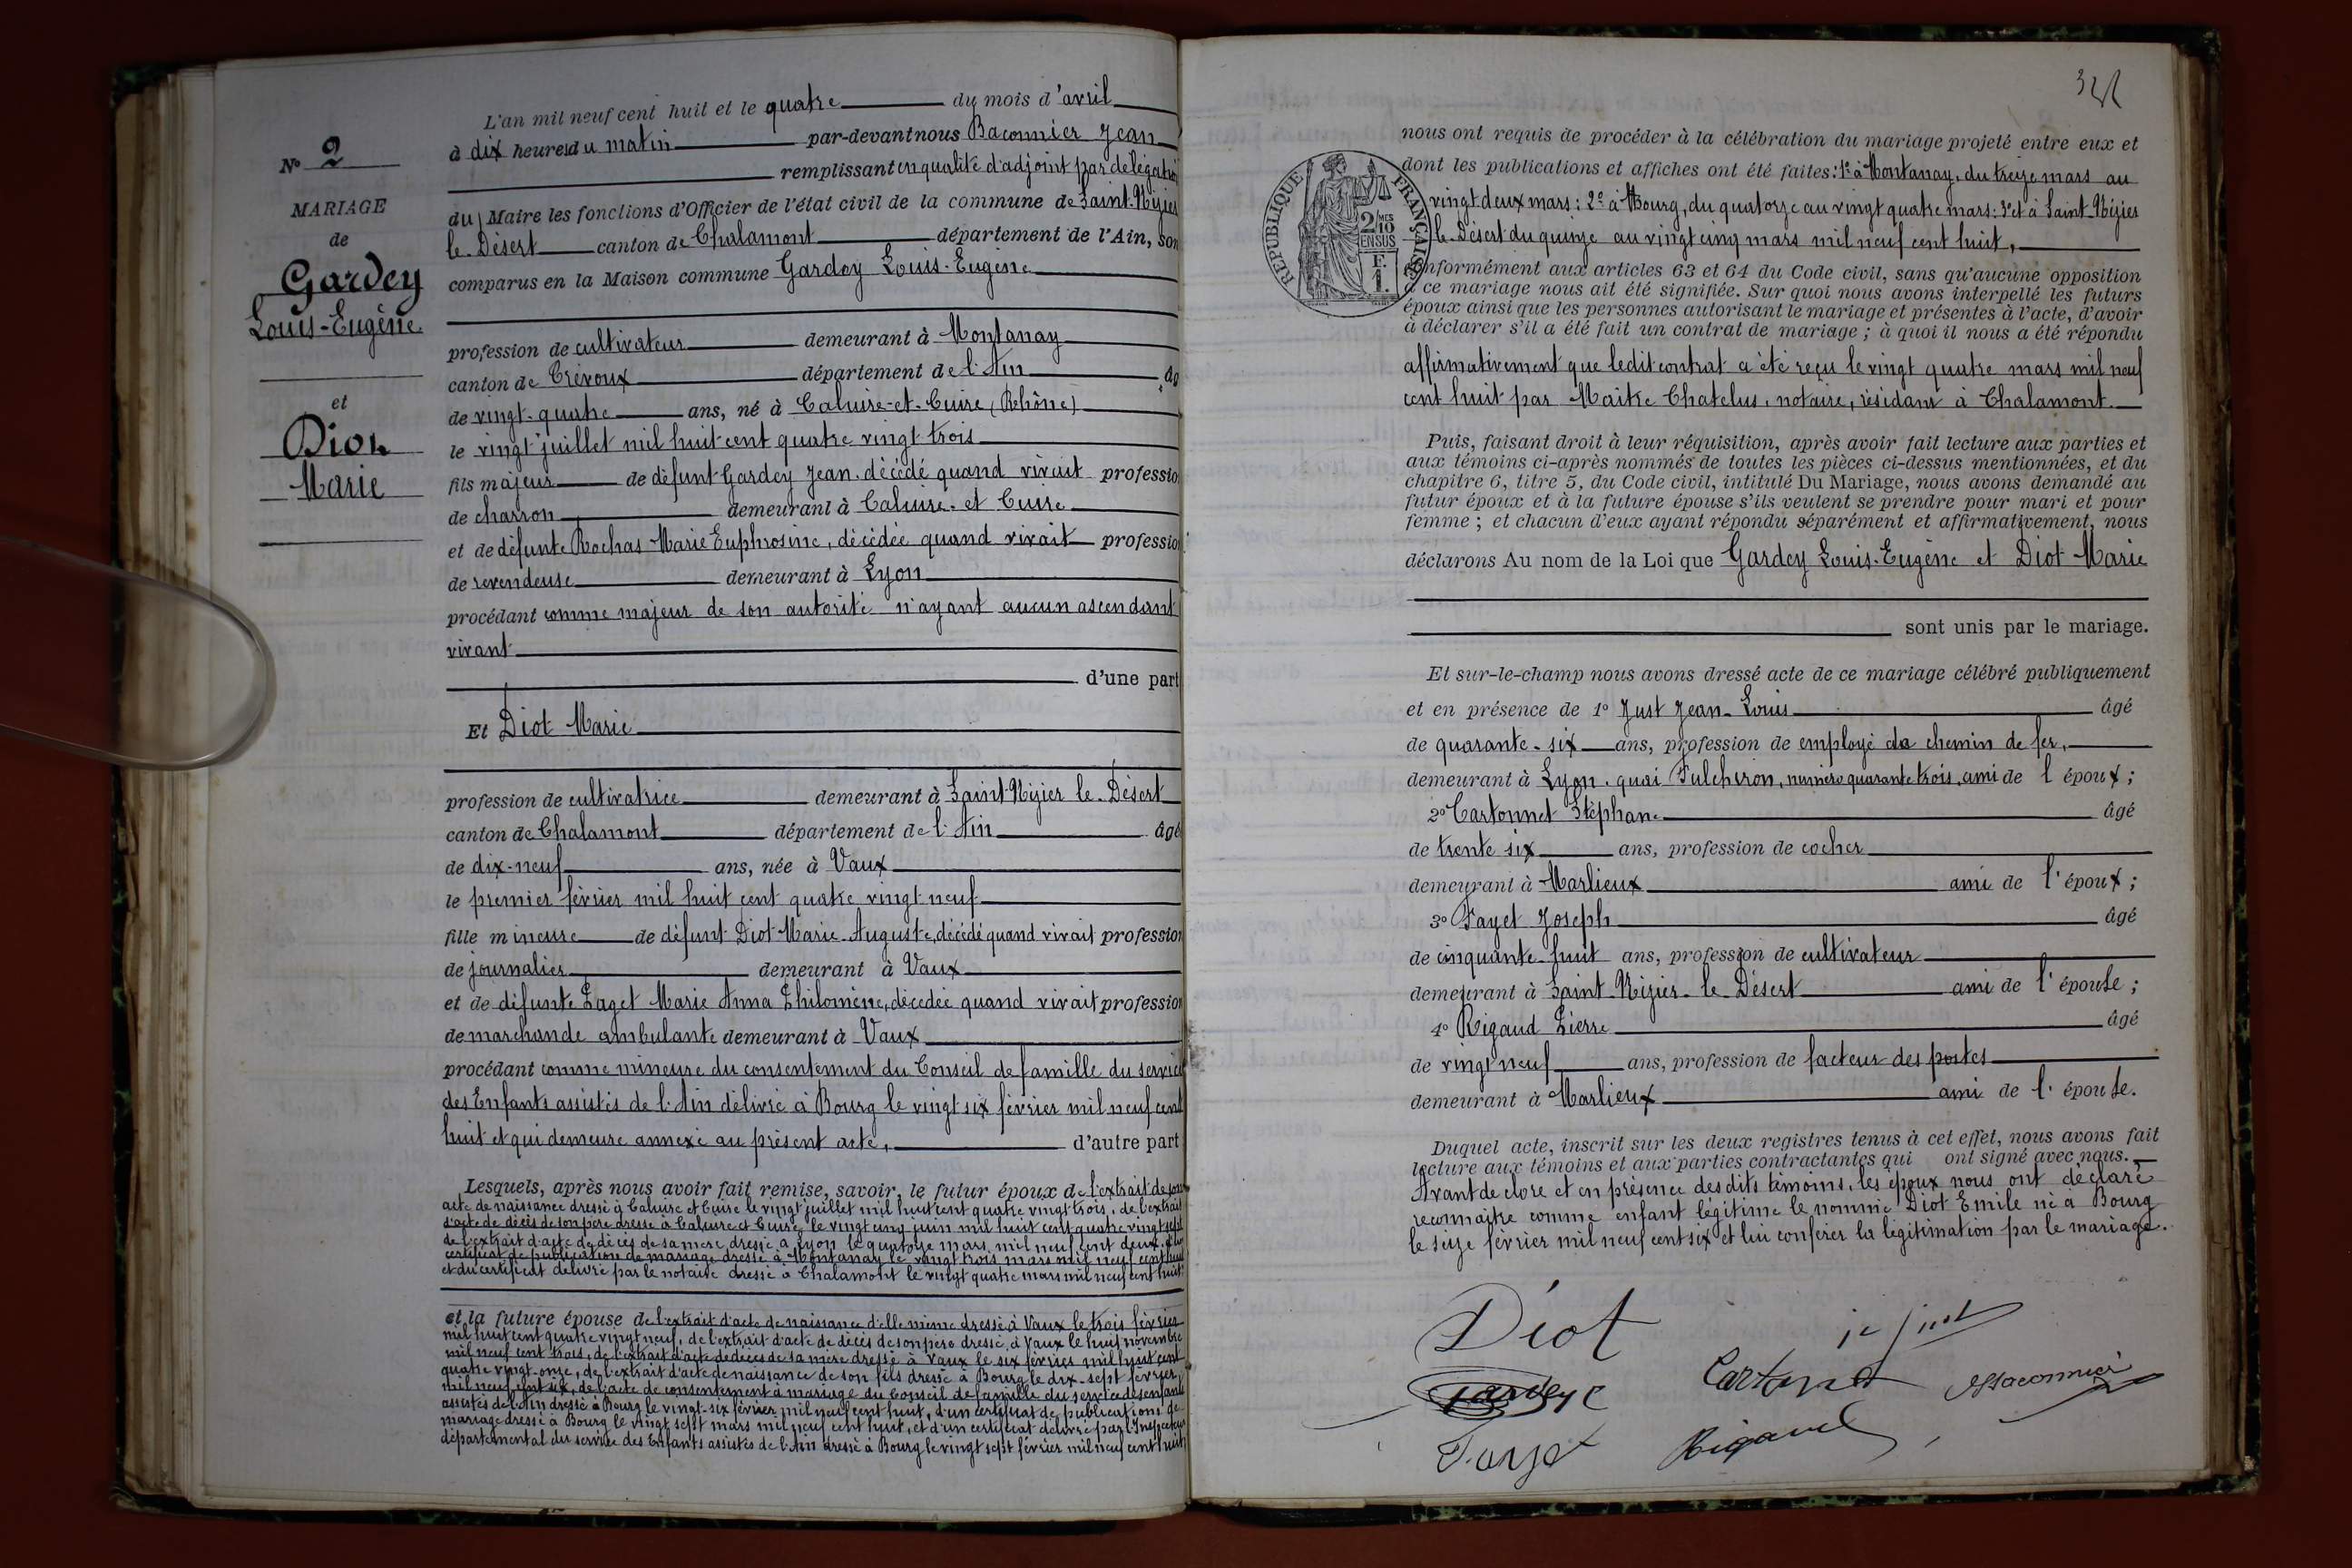 L'an mil neuf cent huit et le quatre du mois d'avril
à dix heures du matin par-devant nous Baconnier Jean
remplissant en qualité d'adjoint par délégation
du Maire les fonctions d'Officier de l'état civil de la commune de Saint-Nizier
le-Désert canton de Chalamont département de l'Ain, son
comparus en la Maison commune Gardey Louis-Eugène
profession de cultivateur demeurant à Montanay
canton de Trévoux département de l'Ain âg
de vingt-quatre ans, né à Caluire-et-Cuire (Rhône)
le vingt juillet mil huit cent quatre vingt trois
fils majeur de défunt Gardey Jean, décédé quand vivait profession
de charron demeurant à Caluire-et Cuire
et de défunte Rochas Marie Euphrosine, décédée quand vivait profession
de revendeuse demeurant à Lyon
procédant comme majeur de son autorité n'ayant aucun ascendant
vivant
d'une part
Nº 2
MARIAGE
de
Gardey
Louis-Eugène
et
Diot
Marie
Et Diot Marie
profession de cultivatrice demeurant à Saint-Nizier le-Désert
canton de Chalamont département de l'Ain âgé
de dix-neuf ans, née à Vaux
le premier février mil huit cent quatre vingt neuf
fille mineure de défunt Diot Marie-Auguste, décédé quand vivait profession
de journalier demeurant à Vaux
et de défunte Paget Marie Anna Philomène, décédée quand vivait profession
de marchande ambulante demeurant à Vaux
procédant comme mineure du consentement du Conseil de famille du service
des Enfants assistés de l'Ain délivré à Bourg le vingt six février mil neuf cent
huit et qui demeure annexé au présent acte, d'autre part
Lesquels, après nous avoir fait remise, savoir, le futur époux de l'extrait de son
acte de naissance dressé à Caluire et Cuire le vingt juillet mil huit cent quatre vingt trois, de l'extrait
d'acte de décès de son père dressé à Caluire et Cuire le vingt cinq juin mil huit cent quatre vingt sept
de l'extrait d'acte de décès de sa mère dressé à Lyon le quatorze mars mil neuf cent deux, d'un
certificat de publication de mariage dressé à Montanay le vingt trois mars mil neuf cent huit
et du certificat délivré par le notaire dressé à Chalamont le vingt quatre mars mil neuf cent huit
et la future épouse de l'extrait d'acte de naissance d'elle même dressé à Vaux le trois février
mil huit cent quatre vingt neuf, de l'extrait d'acte de décès de son père dressé à Vaux le huit novembre
mil neuf cent trois, de l'extrait d'acte de décès de sa mère dressé à Vaux le six février mil huit cent
quatre vingt-onze, de l'extrait d'acte de naissance de son fils dressé à Bourg le dix-sept février
mil neuf cent six, de l'acte de consentement à mariage du Conseil de famille du service des enfants
assistés de l'Ain dressé à Bourg le vingt-six février mil neuf cent huit, d'un certificat de publications de
mariage dressé à Bourg le vingt sept mars mil neuf cent huit, et d'un certificat délivré par l'Inspecteur
départemental du service des Enfants assistés de l'Ain dressé à Bourg le vingt sept février mil neuf cent huit
nous ont requis de procéder à la célébration du mariage projeté entre eux et
dont les publications et affiches ont été faites: 1º à Montanay, du treize mars au
vingt deux mars: 2º à Bourg, du quatorze au vingt quatre mars: 3º et à Saint-Nizier
le-Désert du quinze au vingt cinq mars mil neuf cent huit,
RÉPUBLIQUE FRANÇAISE
2 MES
10
EN SUS
F.
1.
conformément aux articles 63 et 64 du Code civil, sans qu'aucune opposition
à ce mariage nous ait été signifiée. Sur quoi nous avons interpellé les futurs
époux ainsi que les personnes autorisant le mariage et présentes à l'acte, d'avoir
à déclarer s'il a été fait un contrat de mariage; à quoi il nous a été répondu
affirmativement que ledit contrat a été reçu le vingt quatre mars mil neuf
cent huit par Maître Chatelus, notaire, résidant à Chalamont.
Puis, faisant droit à leur réquisition, après avoir fait lecture aux parties et
aux témoins ci-après nommés de toutes les pièces ci-dessus mentionnées, et du
chapitre 6, titre 5, du Code civil, intitulé Du Mariage, nous avons demandé au
futur époux et à la future épouse s'ils veulent se prendre pour mari et pour
femme; et chacun d'eux ayant répondu séparément et affirmativement, nous
déclarons Au nom de la Loi que Gardey Louis-Eugène et Diot Marie
sont unis par le mariage.
Et sur-le-champ nous avons dressé acte de ce mariage célébré publiquement
et en présence de 1º Just Jean-Louis âgé
de quarante-six ans, profession de employé de chemin de fer,
demeurant à Lyon, quai Fulchiron, numéro quarante trois, ami de l époux;
2º Cartonnet Stéphane âgé
de trente six ans, profession de cocher
demeurant à Marlieux ami de l'époux;
3º Fayet Joseph âgé
de cinquante-huit ans, profession de cultivateur
demeurant à Saint-Nizier-le-Désert ami de l'épouse;
4º Rigaud Pierre âgé
de vingt neuf ans, profession de facteur des postes
demeurant à Marlieux ami de l'épouse.
Duquel acte, inscrit sur les deux registres tenus à cet effet, nous avons fait
lecture aux témoins et aux parties contractantes qui ont signé avec nous.
Avant de clore et en présence des dits témoins, les époux nous ont déclaré
reconnaître comme enfant légitime le nommé Diot Emile né à Bourg
le seize février mil neuf cent six et lui conférer la légitimation par le mariage.
Diot
Cartonnet
Baconnier
Gardey
Fayet
Rigaud